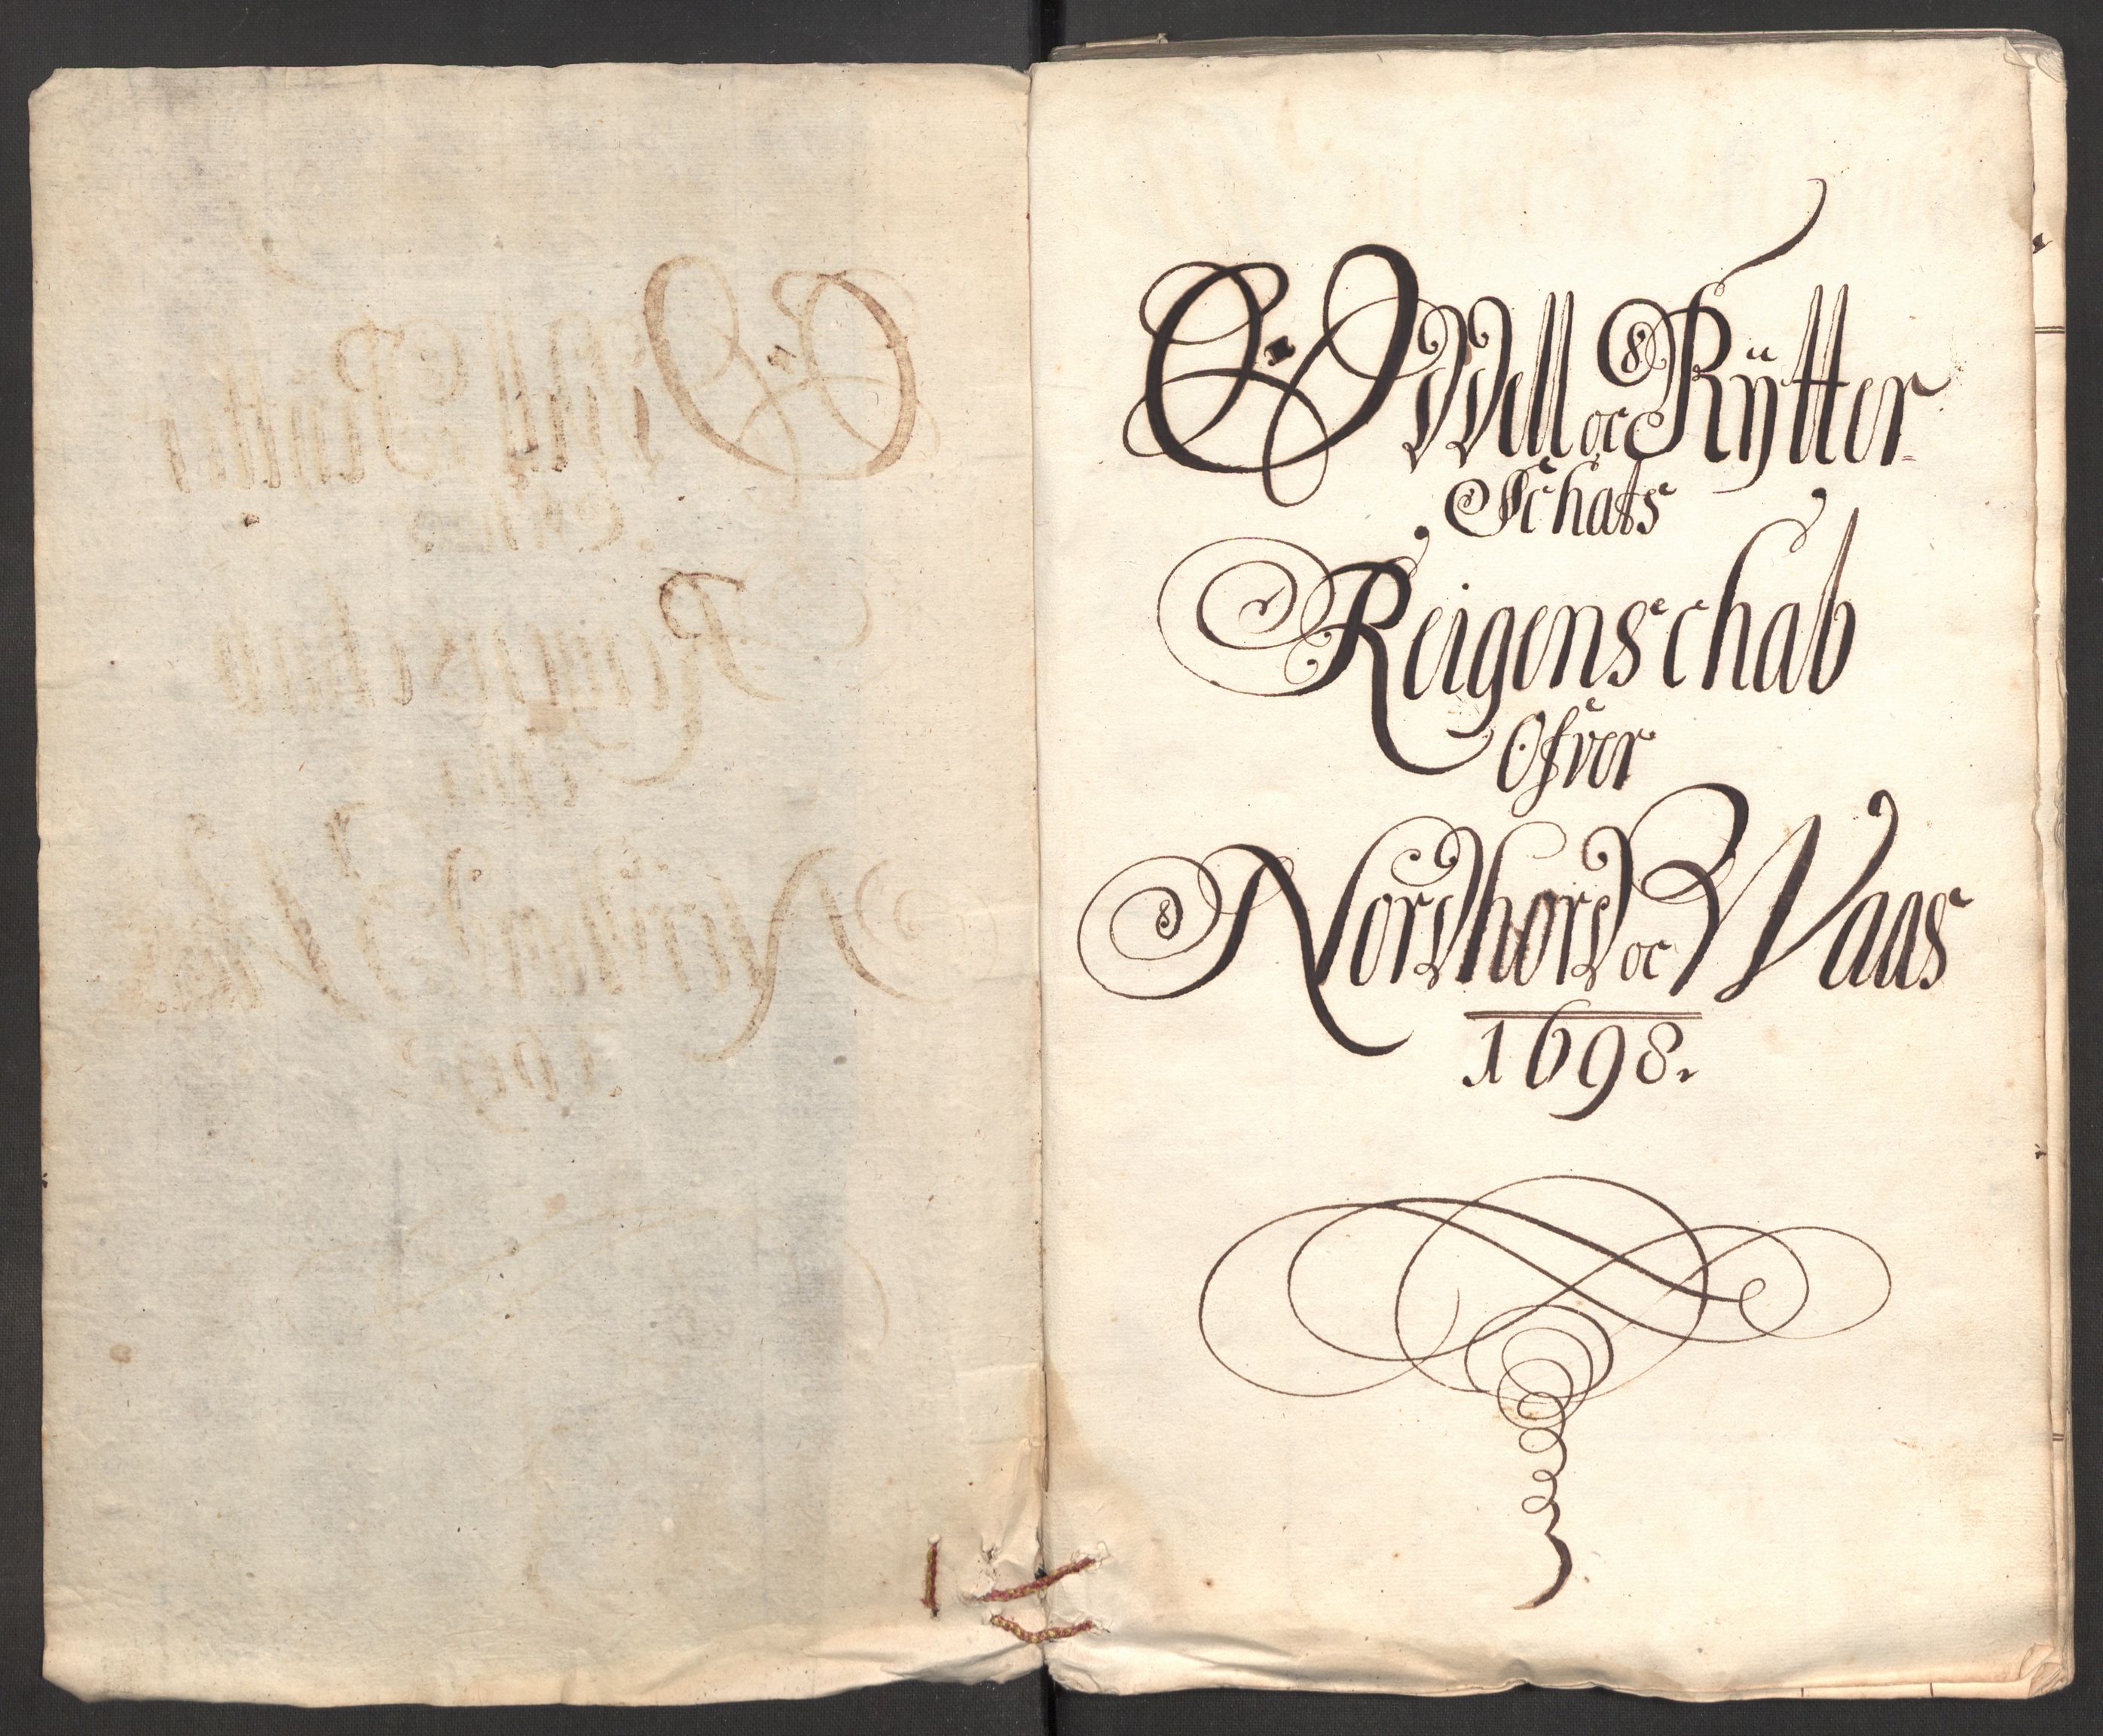 Odell oc Rÿtter
Schats
Reigenschab
Ofver
Nordhord oc Waas
1698.